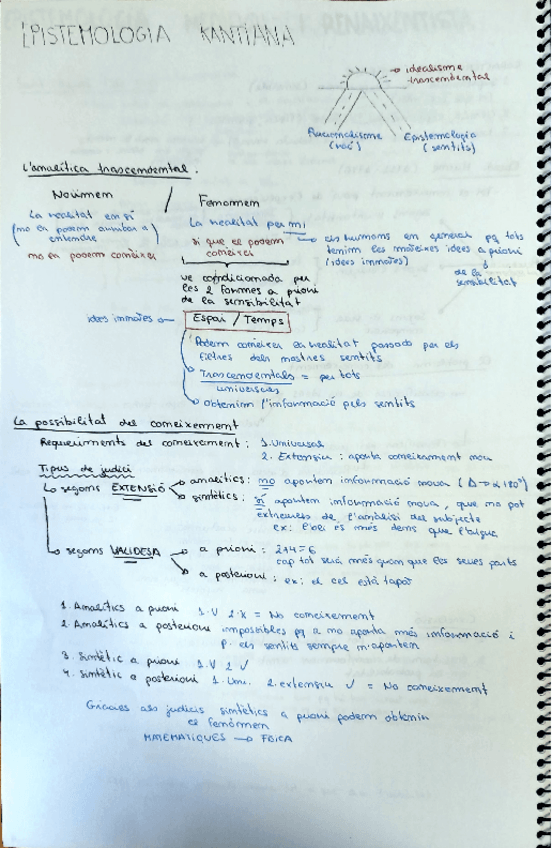 EPISTEMOLOGIA KANTIANA
→ idealisme
trascendental
Racionalisme
(raó)
Epistemologia
(sentits)
L'analítica trascendental.
Noümen / Fenomen
La realitat en si
(no en podem arribar a
entendre)
no en podem conèixer
La realitat per mi
si que es podem
conèixer
→ els humans en general pq tots
tenim les mateixes idees a priori
(idees innates)
de la
sensibilitat
ve condicionada per
les 2 formes a priori
de la sensibilitat
idees innates ← Espai / Temps
Podem conèixer la realitat passada pels
filtres dels nostres sentits
Trascendentals = per tots
universals
Obtenim l'informació pels sentits
La possibilitat del coneixement
Requeriments del coneixement: 1. Universal
2. Extensiu: aporta coneixement nou
Tipus de judici
↳ segons EXTENSIÓ
analítics: no aporten informació nova (Δ → α 180°)
sintètics: sí aporten informació nova, que no pot
extreure's de l'anàlisi del subjecte
ex: l'oli és més dens que l'aigua
→ segons VALIDESA
a priori: 2+4=6
cap tot serà més gran que les seues parts
a posteriori: ex: el cel està tapat
1. Analítics a priori 1. V 2. X = No coneixement
2. Analítics a posteriori impossibles pq a no aporta més informació i
p. els sentits sempre n'aporten
3. Sintètic a priori 1. V 2. √
4. Sintètic a posteriori 1. Uni. 2. extensiu √ = No coneixement
Gràcies als judicis sintètics a priori podem obtenir
el fenòmen
MATEMATIQUES → FÍSICA